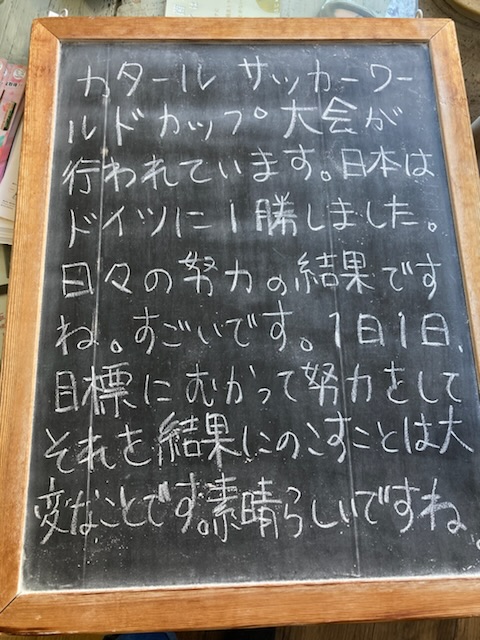 カタール サッカーワー
ルドカップ 大会が
行われています。日本は
ドイツに1勝しました。
日々の努力の結果です
ね。すごいです。1日1日、
目標にむかって努力をして
それを結果にのこすことは大
変なことです。素晴らしいですね。